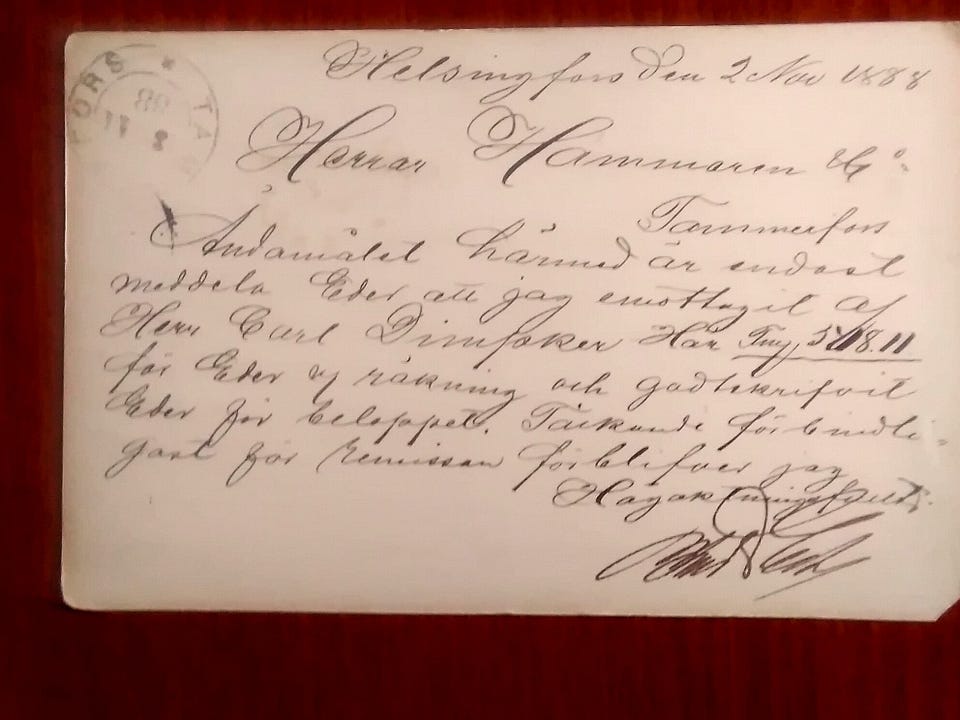 Helsingfors den 2 Nov 1888
Herrar Hammaren & Co
Tammerfors
Ändamålet härmed är endast
meddela Eder att jag emottagit af
Herr Carl här Fmf
för Eder räkning och godtskrifvit
Eder för beloppet. Tackande förbindli-
gast för remissan förblifver jag
Högaktningsfullt
FORS * TA
88
11